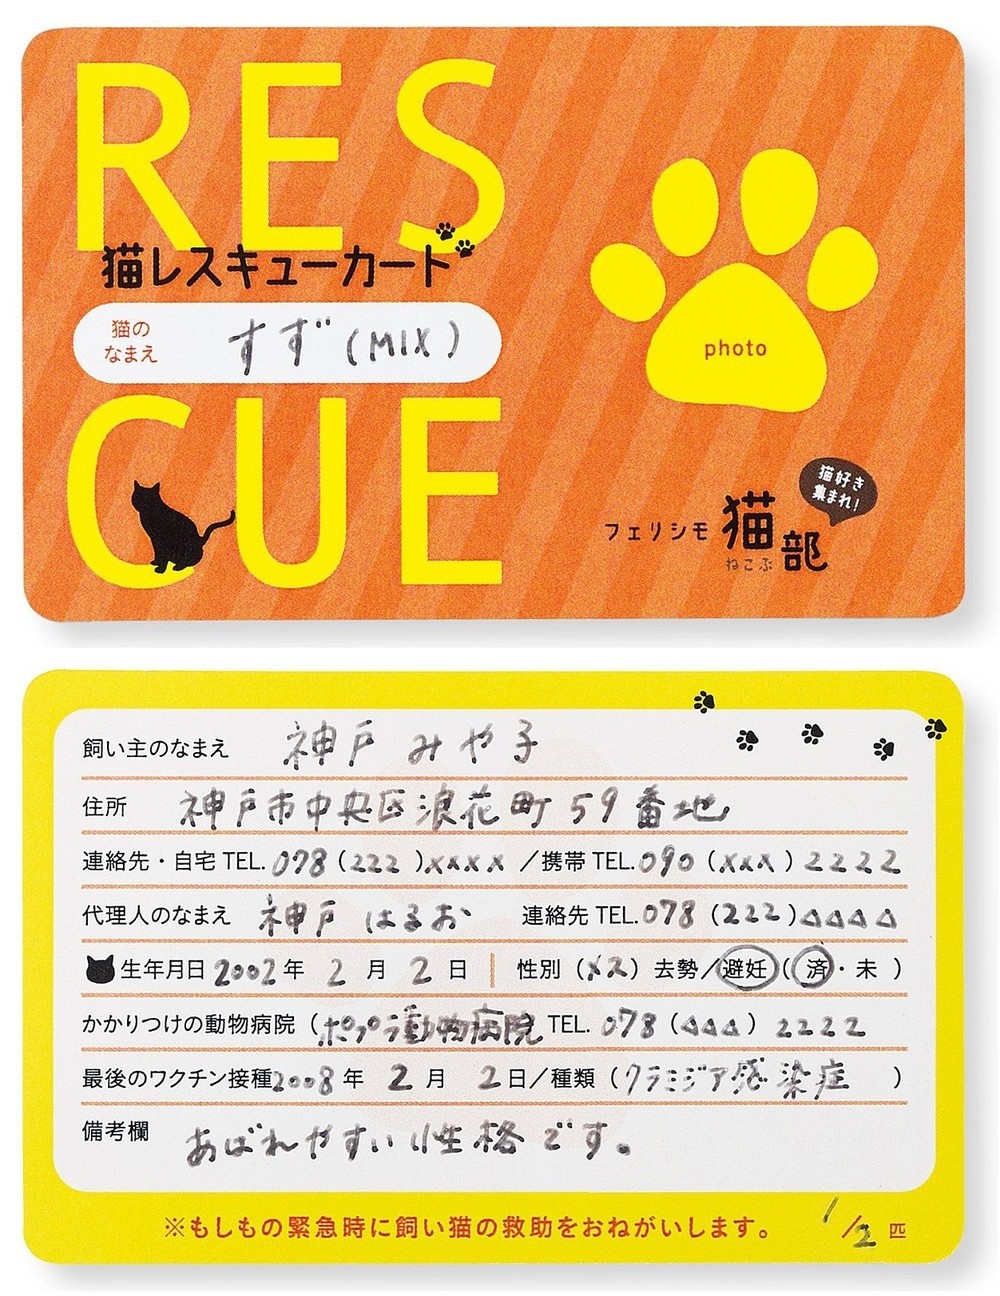 RES
猫レスキューカート
猫の
なまえ
すず(MIX)
CUE
photo
猫好き
集まれ!
フェリシモ 猫部
ねこぶ
飼い主のなまえ 神戸 みや子
住所 神戸市中央区浪花町59番地
連絡先・自宅TEL.078(222)xxxx/携帯TEL.090(xxx)2222
代理人のなまえ 神戸 はるお 連絡先TEL.078(222)△△△△
生年月日2002年 2月 2日 性別(メス) 去勢/避妊(済・未)
かかりつけの動物病院(ポプラ動物病院 TEL. 078(△△△) 2222
最後のワクチン接種2008年 2月 2日/種類(クラミジア感染症)
備考欄 あばれやすい性格です。
※もしもの緊急時に飼い猫の救助をおねがいします。 1/2 匹